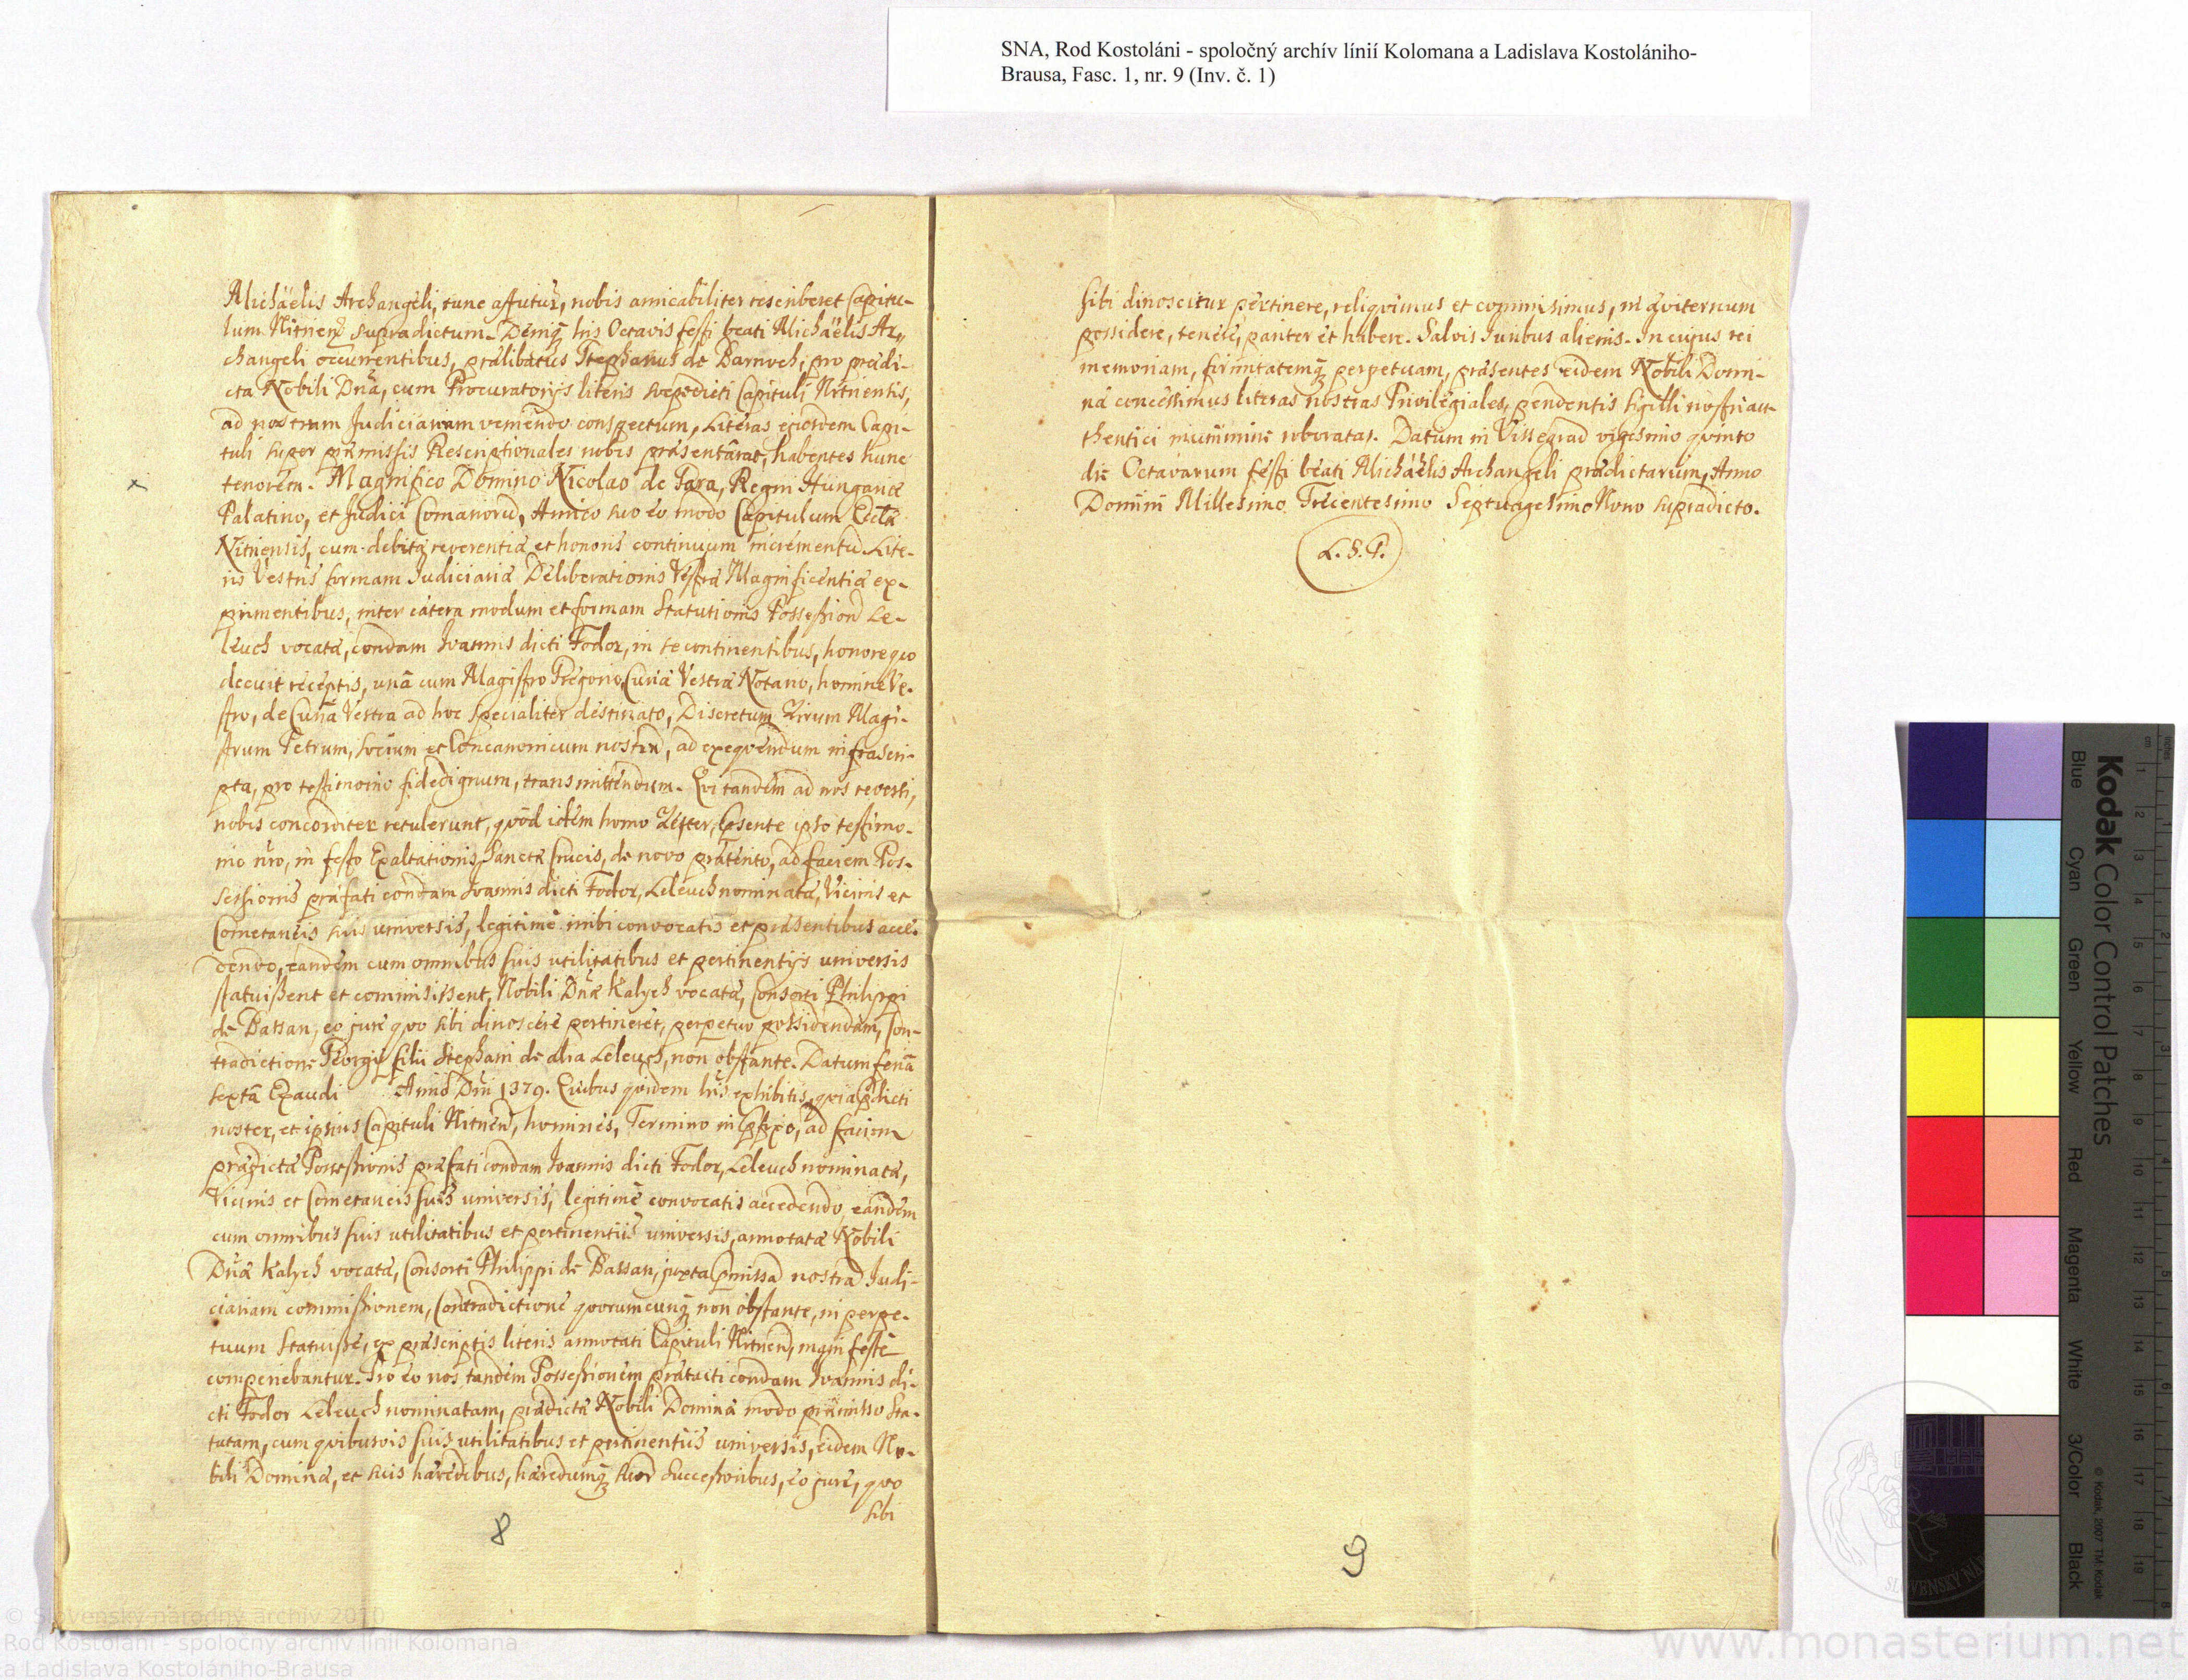 SNA, Rod Kostoláni - spoločný archív línií Kolomana a Ladislava Kostolániho-
Brausa, Fasc. 1, nr. 9 (Inv. č. 1)
Michäelis Archangeli, tunc affuturū, nobis amicabiliter rescriberet Capitu-
lum Nitrien supradictum. Demiq his Octavis festi beati Michäelis Ar„
changeli occurrentibus, prælibatus Stephanus de Barnvch, pro prædi-
cta Nobili Dnā, cum Procuratorijs literis sæpedicti Capituli Nitriensis,
ad nostrum Judiciarium veniendo conspectum, Literas ejusdem Capi-
tuli super præmissis Rescriptionales nobis præsentârat, habentes hunc
tenorem. Magnifico Domino Nicolao de Gara, Regni Hungariæ
Palatino, et Judici Comanorū, Amico suo eo modo Capitulum Ecclæ
Nitriensis, cum debitæ reverentiæ et honoris continuum incrementū. Lite-
ris Vestris formam Judiciariæ Deliberationis Vestræ Magnificentiæ ex-
primentibus, inter cætera modum et formam Statutionis Possession Le-
leuch vocatæ, condam Ivannis dicti Fodor, in se continentibus, honore quo
decuit receptis, unâ cum Magistro Gregorio, Curiæ Vestræ Notario, homine Ve-
stro, de Curiâ Vestra ad hoc specialiter destinato, Discretum Virum Magi-
strum Petrum, socium et Concanonicum nostrū, ad exequendum infrascri-
pta, pro testimonio fidedignum, transmittendum. Qui tandem ad nos reversi,
nobis concorditer retulerunt, quòd idem homo Vester, psente ipso testimo-
nio nro, in festo Exaltationis Sanctæ Crucis, de novo præterito, ad faciem Pos-
sessionis præfati condam Ivannis dicti Fodor, Leleuch nominatæ, Vicinis et
Cometaneis suis universis, legitimè inibi convocatis et præsentibus acce-
dendo, eandem cum omnibus suis utilitatibus et pertinentijs universis
statuissent et commisissent, Nobili Dnæ Kalych vocatæ, Consorti Philippi
de Bassan, eo jure quo sibi dinoscere pertineret, perpetuo possidendam, Con-
tradictione Georgij filii Stephani de alia Leleuch, non obstante. Datum feriâ
sextâ Exaudi Anno Dni 1379. Quibus quidem his exhibitis, quia pdicti
noster, et ipsius Capituli Nitrien, homines, Termino in pfixo, ad faciem
prædictæ Possessionis præfati condam Ivannis dicti Fodor, Leleuch nominatæ,
Vicinis et Cometaneis suis universis, legitimè convocatis accedendo, eandem
cum omnibus suis utilitatibus et pertinentiis universis, annotatæ Nobili
Dnæ Kalych vocatæ, Consorti Philippi de Bassan, juxta pmissā nostrā Judi-
ciariam commissionem, Contradictione quorumcunq non obstante, in perpe-
tuum Statuisse, ex præscriptis literis annotati Capituli Nitrien, manifestè
comperiebantur. Pro eo nos tandem Possessionem prætacti condam Ivannis di-
cti Fodor Leleuch nominatam, prædictæ Nobili Dominæ modo præmisso Sta-
tutam, cum quibusvis suis utilitatibus et pertinentiis universis, eidem No-
bili Dominæ, et suis hæredibus, hæredumq suor Successoribus, eo jure, quo
sibi
8
sibi dinoscitur pertinere, reliquimus et commisimus, in æviternum
possidere, tenere, pariter et habere. Salvis Juribus alienis. In cujus rei
memoriam, firmitatemq perpetuam, præsentes eidem Nobili Domi-
næ concessimus literas nostras Privilegiales, pendentis sigilli nostri au-
thentici munimine roboratas. Datum in Vissegrad vigesimo quinto
die Octavarum festi beati Michäelis Archangeli prædictarum, Anno
Domini Millesimo Trecentesimo Septuagesimo Nono supradicto.
L. S. P.
9
Kodak Color Control Patches
Blue Cyan Green Yellow Red Magenta White 3/Color Black
© Kodak, 2007 TM: Kodak
© Slovenský národný archív 2010
Rod Kostoláni - spoločný archív línií Kolomana
a Ladislava Kostolániho-Brausa
www.monasterium.net